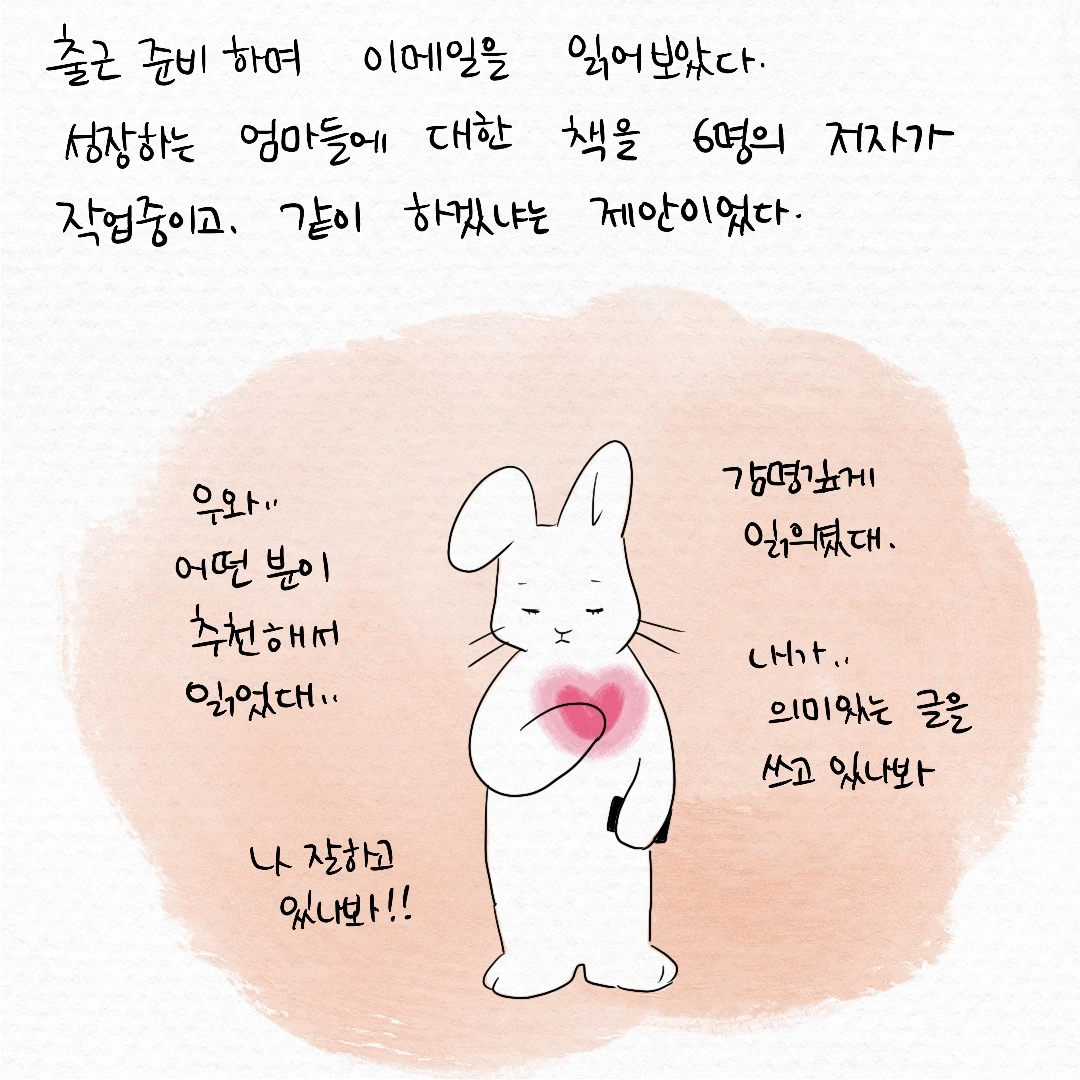 출근 준비 하며 이메일을 읽어보았다.
성장하는 엄마들에 대한 책을 6명의 저자가
작업중이고. 같이 하겠냐는 제안이었다.
우와..
어떤 분이
추천해서
읽었대..
감명깊게
읽으셨대.
내가..
의미있는 글을
쓰고 있나봐
나 잘하고
있나봐!!